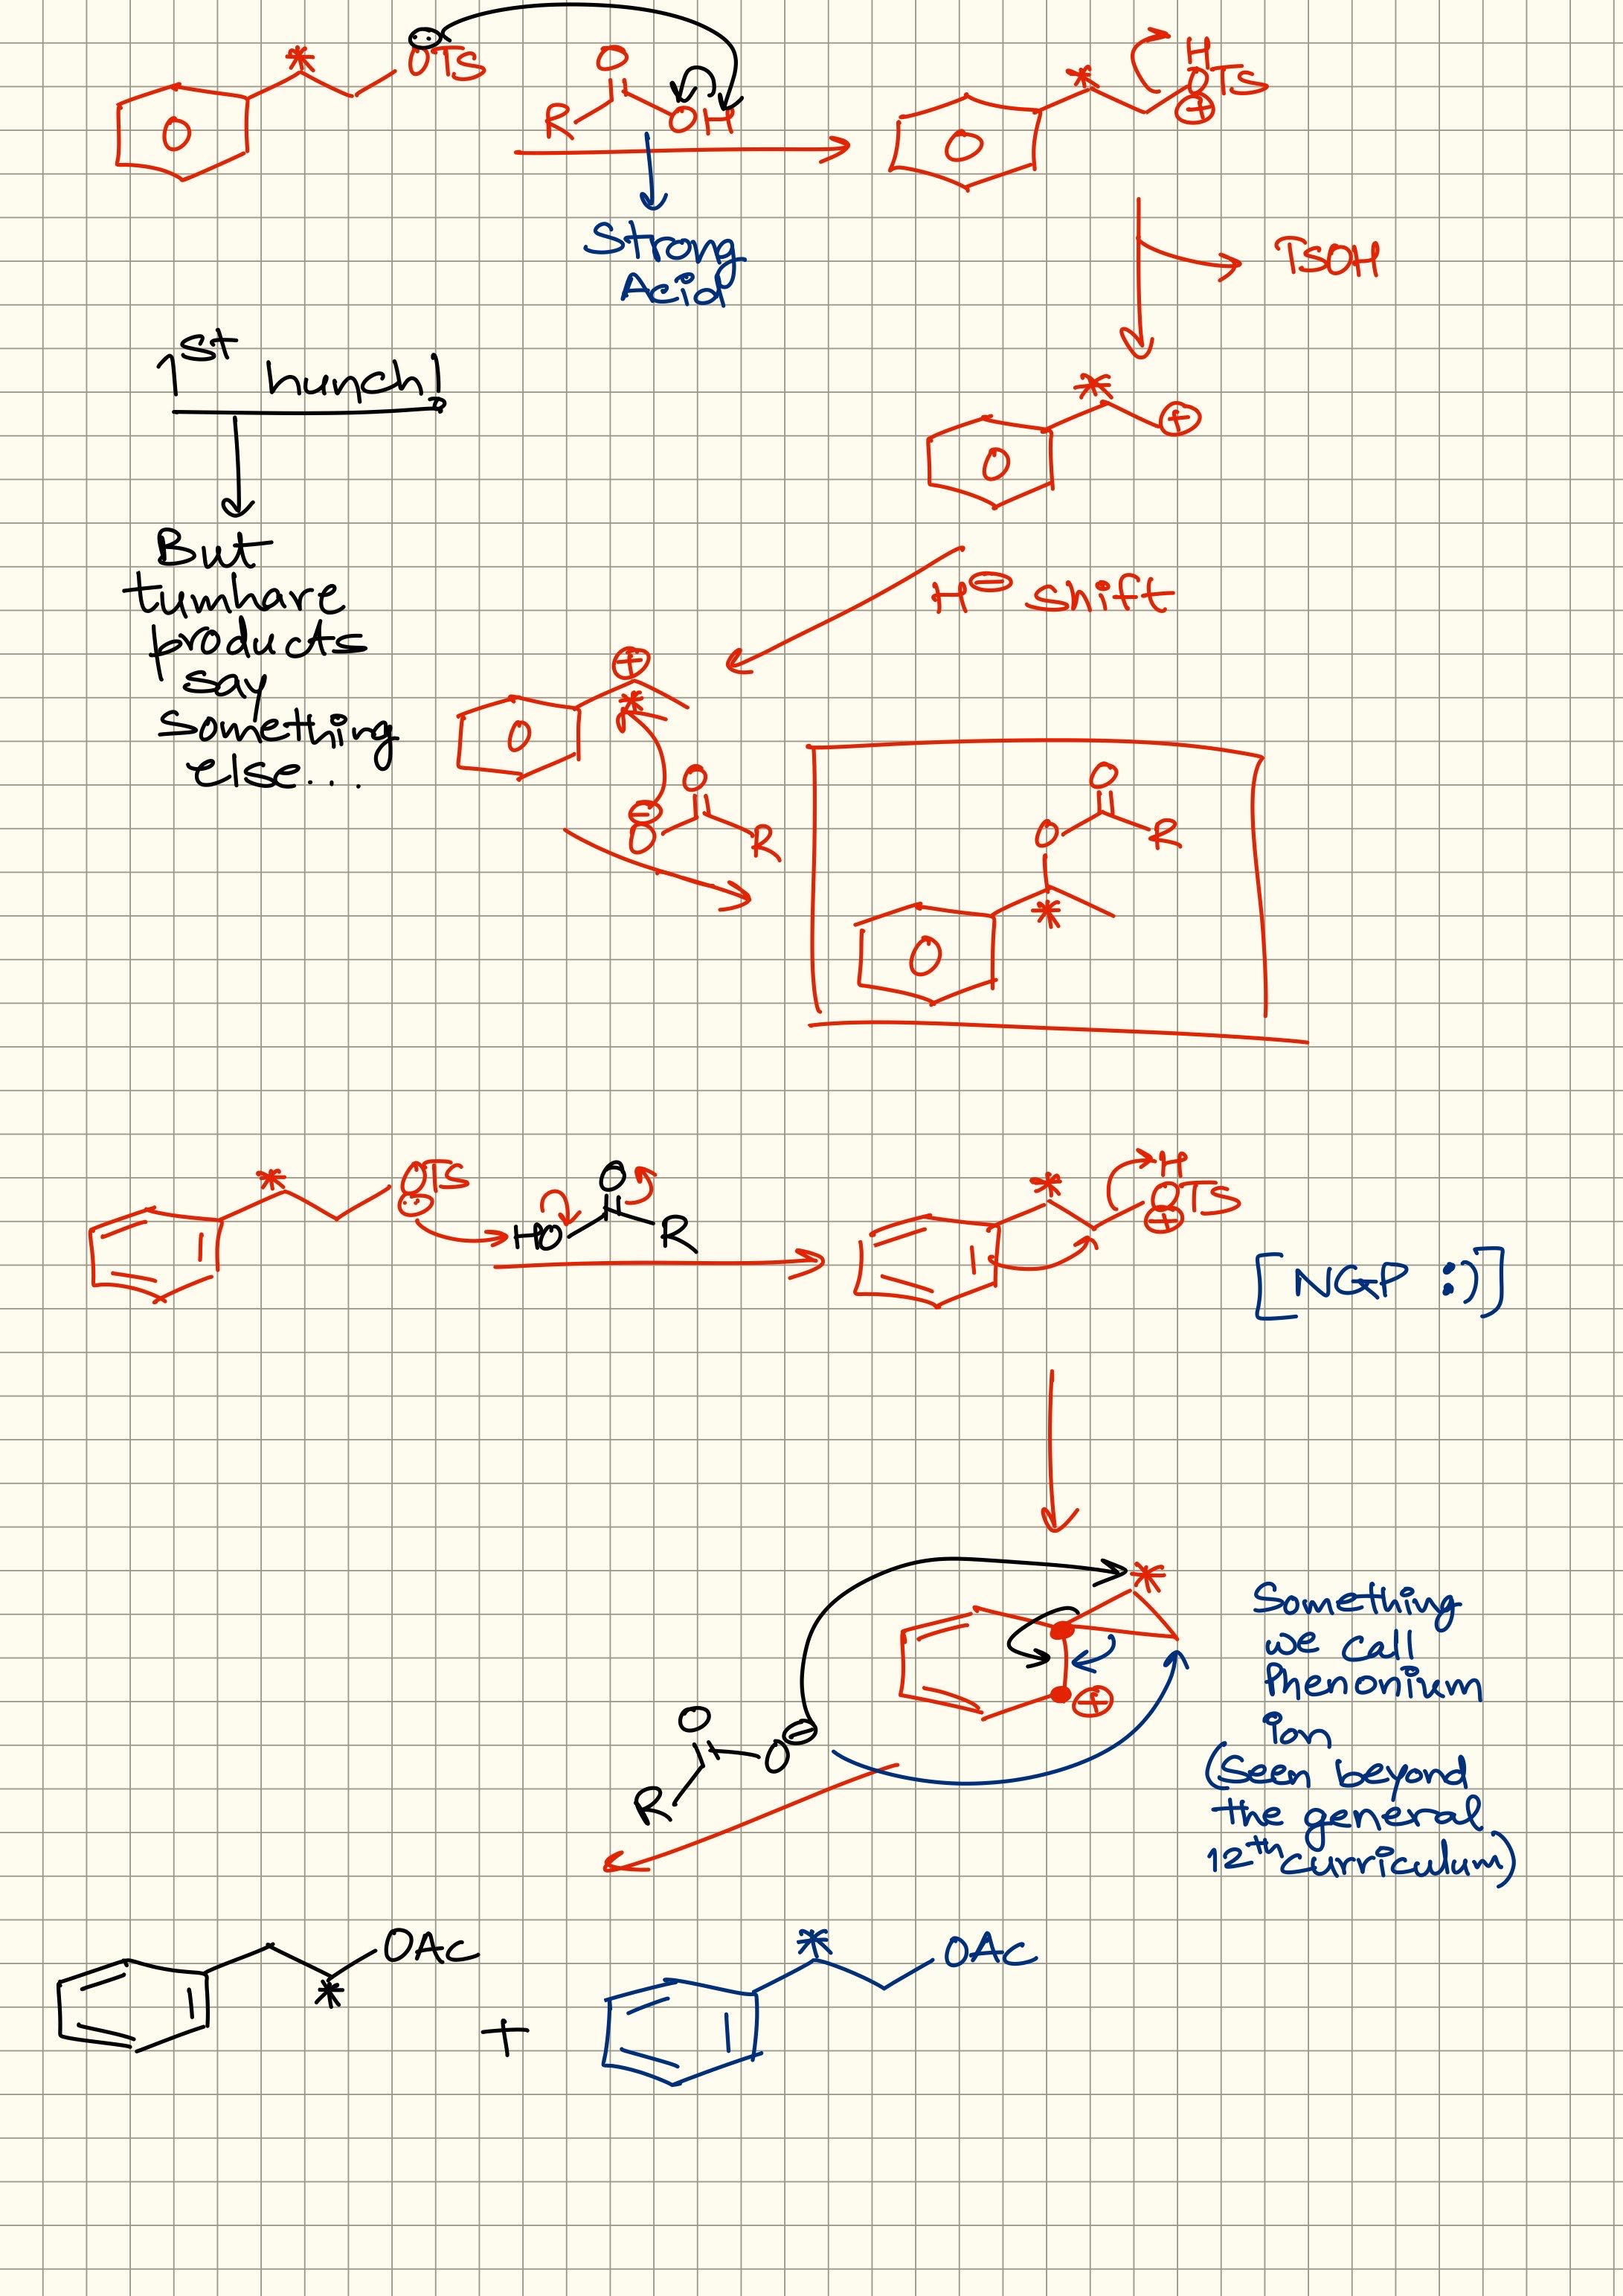 * OTS O R OH * H OTS ⊕
O O
Strong
Acid
TSOH
1st hunch!
* ⊕
O
But
tumhare
products
say
something
else...
H⊖ shift
⊕
*
O O
⊖
O R
O
O R
*
O
* OTS O HO R * H OTS ⊕
[NGP :)]
*
⊕
O O⊖
R
Something
we call
Phenonium
ion
(Seen beyond
the general
12th curriculum)
OAC * + * OAC